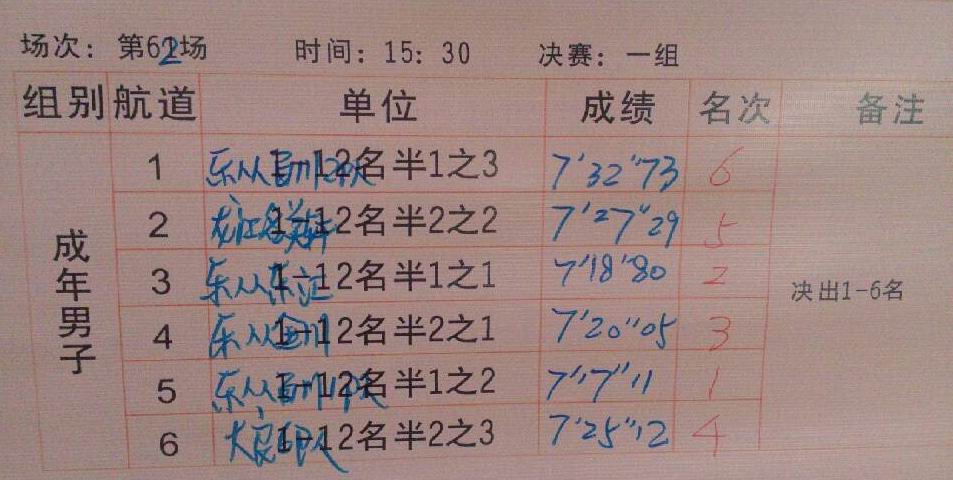 场次：第62场 时间：15：30 决赛：一组
组别 航道 单位 成绩 名次 备注
成年男子
1 1-12名半1之3 7'32"73 6
2 1-12名半2之2 7'27"29 5
3 乐从东 1-12名半1之1 7'18'80 2
决出1-6名
4 乐从 1-12名半2之1 7'20"05 3
5 乐从 1-12名半1之2 7'17"11 1
6 大良 1-12名半2之3 7'25"12 4